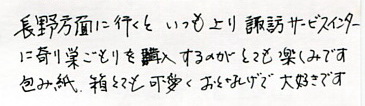 長野方面に行くと いつも上り 諏訪サービスインター
に寄り巣ごもりを購入するのがとても楽しみです
包み紙、箱とても可愛くおとなしげで大好きです